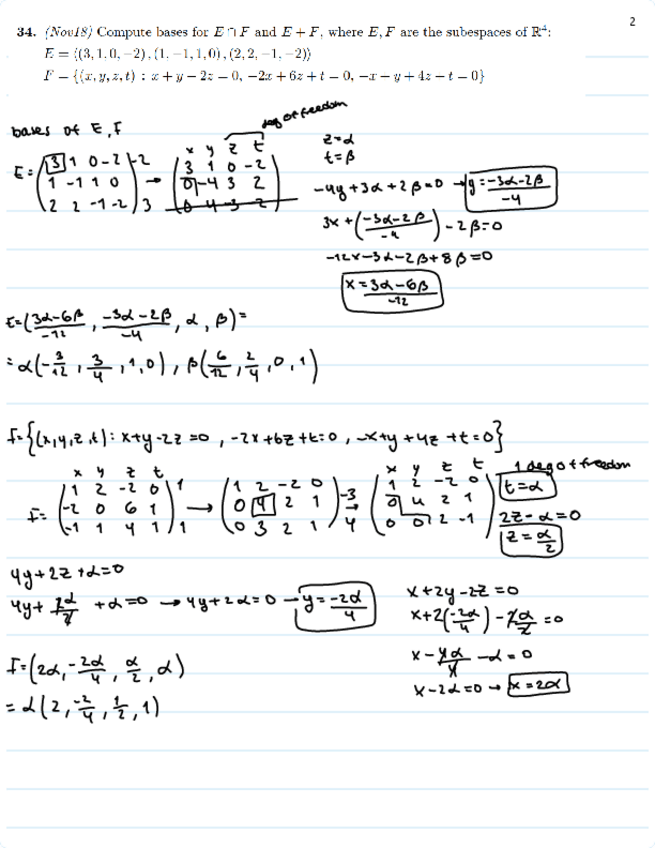 2
34. (Nov18) Compute bases for E ∩ F and E + F, where E, F are the subspaces of R⁴:
E = ⟨(3, 1, 0, −2), (1, −1, 1, 0), (2, 2, −1, −2)⟩
F = {(x, y, z, t) : x + y − 2z = 0, −2x + 6z + t = 0, −x − y + 4z − t = 0}
bases of E, F
deg of freedom
x y z t
E = (3 1 0 -2 | -2
1 -1 1 0
2 2 -1 -2) 3
→ (3 1 0 -2
0 -4 3 2
0 4 -3 -2)
z=α
t=β
-4y+3α+2β=0 → y = -3α-2β / -4
3x + (-3α-2β / -4) - 2β=0
-12x-3α-2β+8β=0
x = 3α-6β / -12
E=(3α-6β / -12, -3α-2β / -4, α, β)=
=α(-3/12, 3/4, 1, 0), β(6/12, 2/4, 0, 1)
F={(x,y,z,t): x+y-2z=0, -2x+6z+t=0, -x+y+4z+t=0}
x y z t
F= (1 2 -2 0 | 1
-2 0 6 1
-1 1 4 1) 1
→ (1 2 -2 0
0 4 2 1
0 3 2 1) -3 4
→ x y z t
(1 2 -2 0
0 4 2 1
0 0 2 -1)
1 deg of freedom
t=α
2z-α=0
z=α/2
4y+2z+α=0
4y+2α/2+α=0 → 4y+2α=0 → y=-2α/4
x+2y-2z=0
x+2(-2α/4)-2α/2=0
x-4α/4-α=0
x-2α=0 → x=2α
F=(2α, -2α/4, α/2, α)
=α(2, -2/4, 1/2, 1)